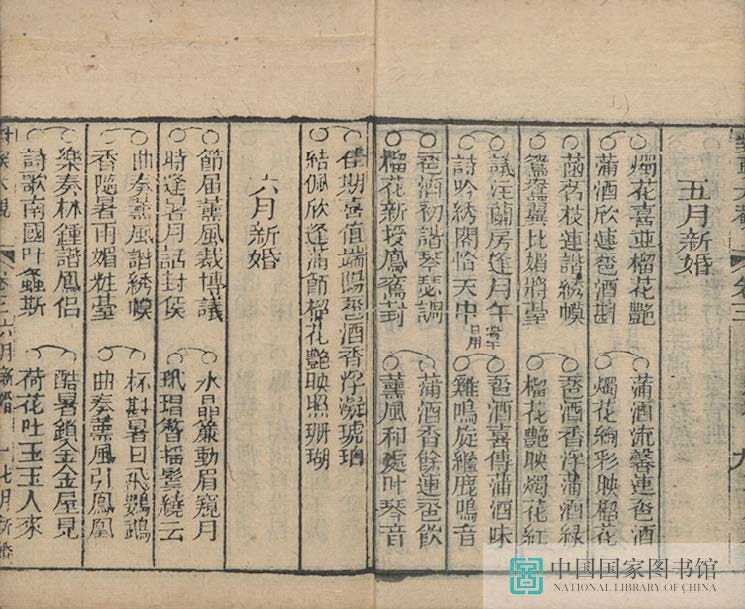 五月新婚
燭花喜並榴花艷 蒲酒流馨連卺酒
蒲酒欣連卺酒斟 燭花絢彩映榴花
菡茗枝連諧綉幙 卺酒香浮蒲酒綠
鴛鴦翼比媚粧臺 榴花艷映燭花紅
議注蘭房逢月午 卺酒喜傳蒲酒味
詩吟綉閣恰天中 當午日用 雞鳴旋繼鹿鳴音
卺酒初諧琴瑟調 蒲酒香餘連卺飲
榴花新授鳳鸞封 薰風和處叶琴音
佳期喜值端陽卺酒香浮凝琥珀
結佩欣逢蒲節榴花艷映照珊瑚
六月新婚
節屆薰風裁博議 水晶簾動眉窺月
時逢暑月話封侯 玳瑁簪搖鬢繞云
曲奏薰風諧綉幙 杯斟暑日飛鸚鵡
香隨暑雨媚粧臺 曲奏薰風引鳳凰
樂奏林鍾諧鳳侶 酷暑鎖金金屋見
詩歌南國叶螽斯 荷花吐玉玉人來
卷三 六月新婚 七月新婚
中国国家图书馆
NATIONAL LIBRARY OF CHINA